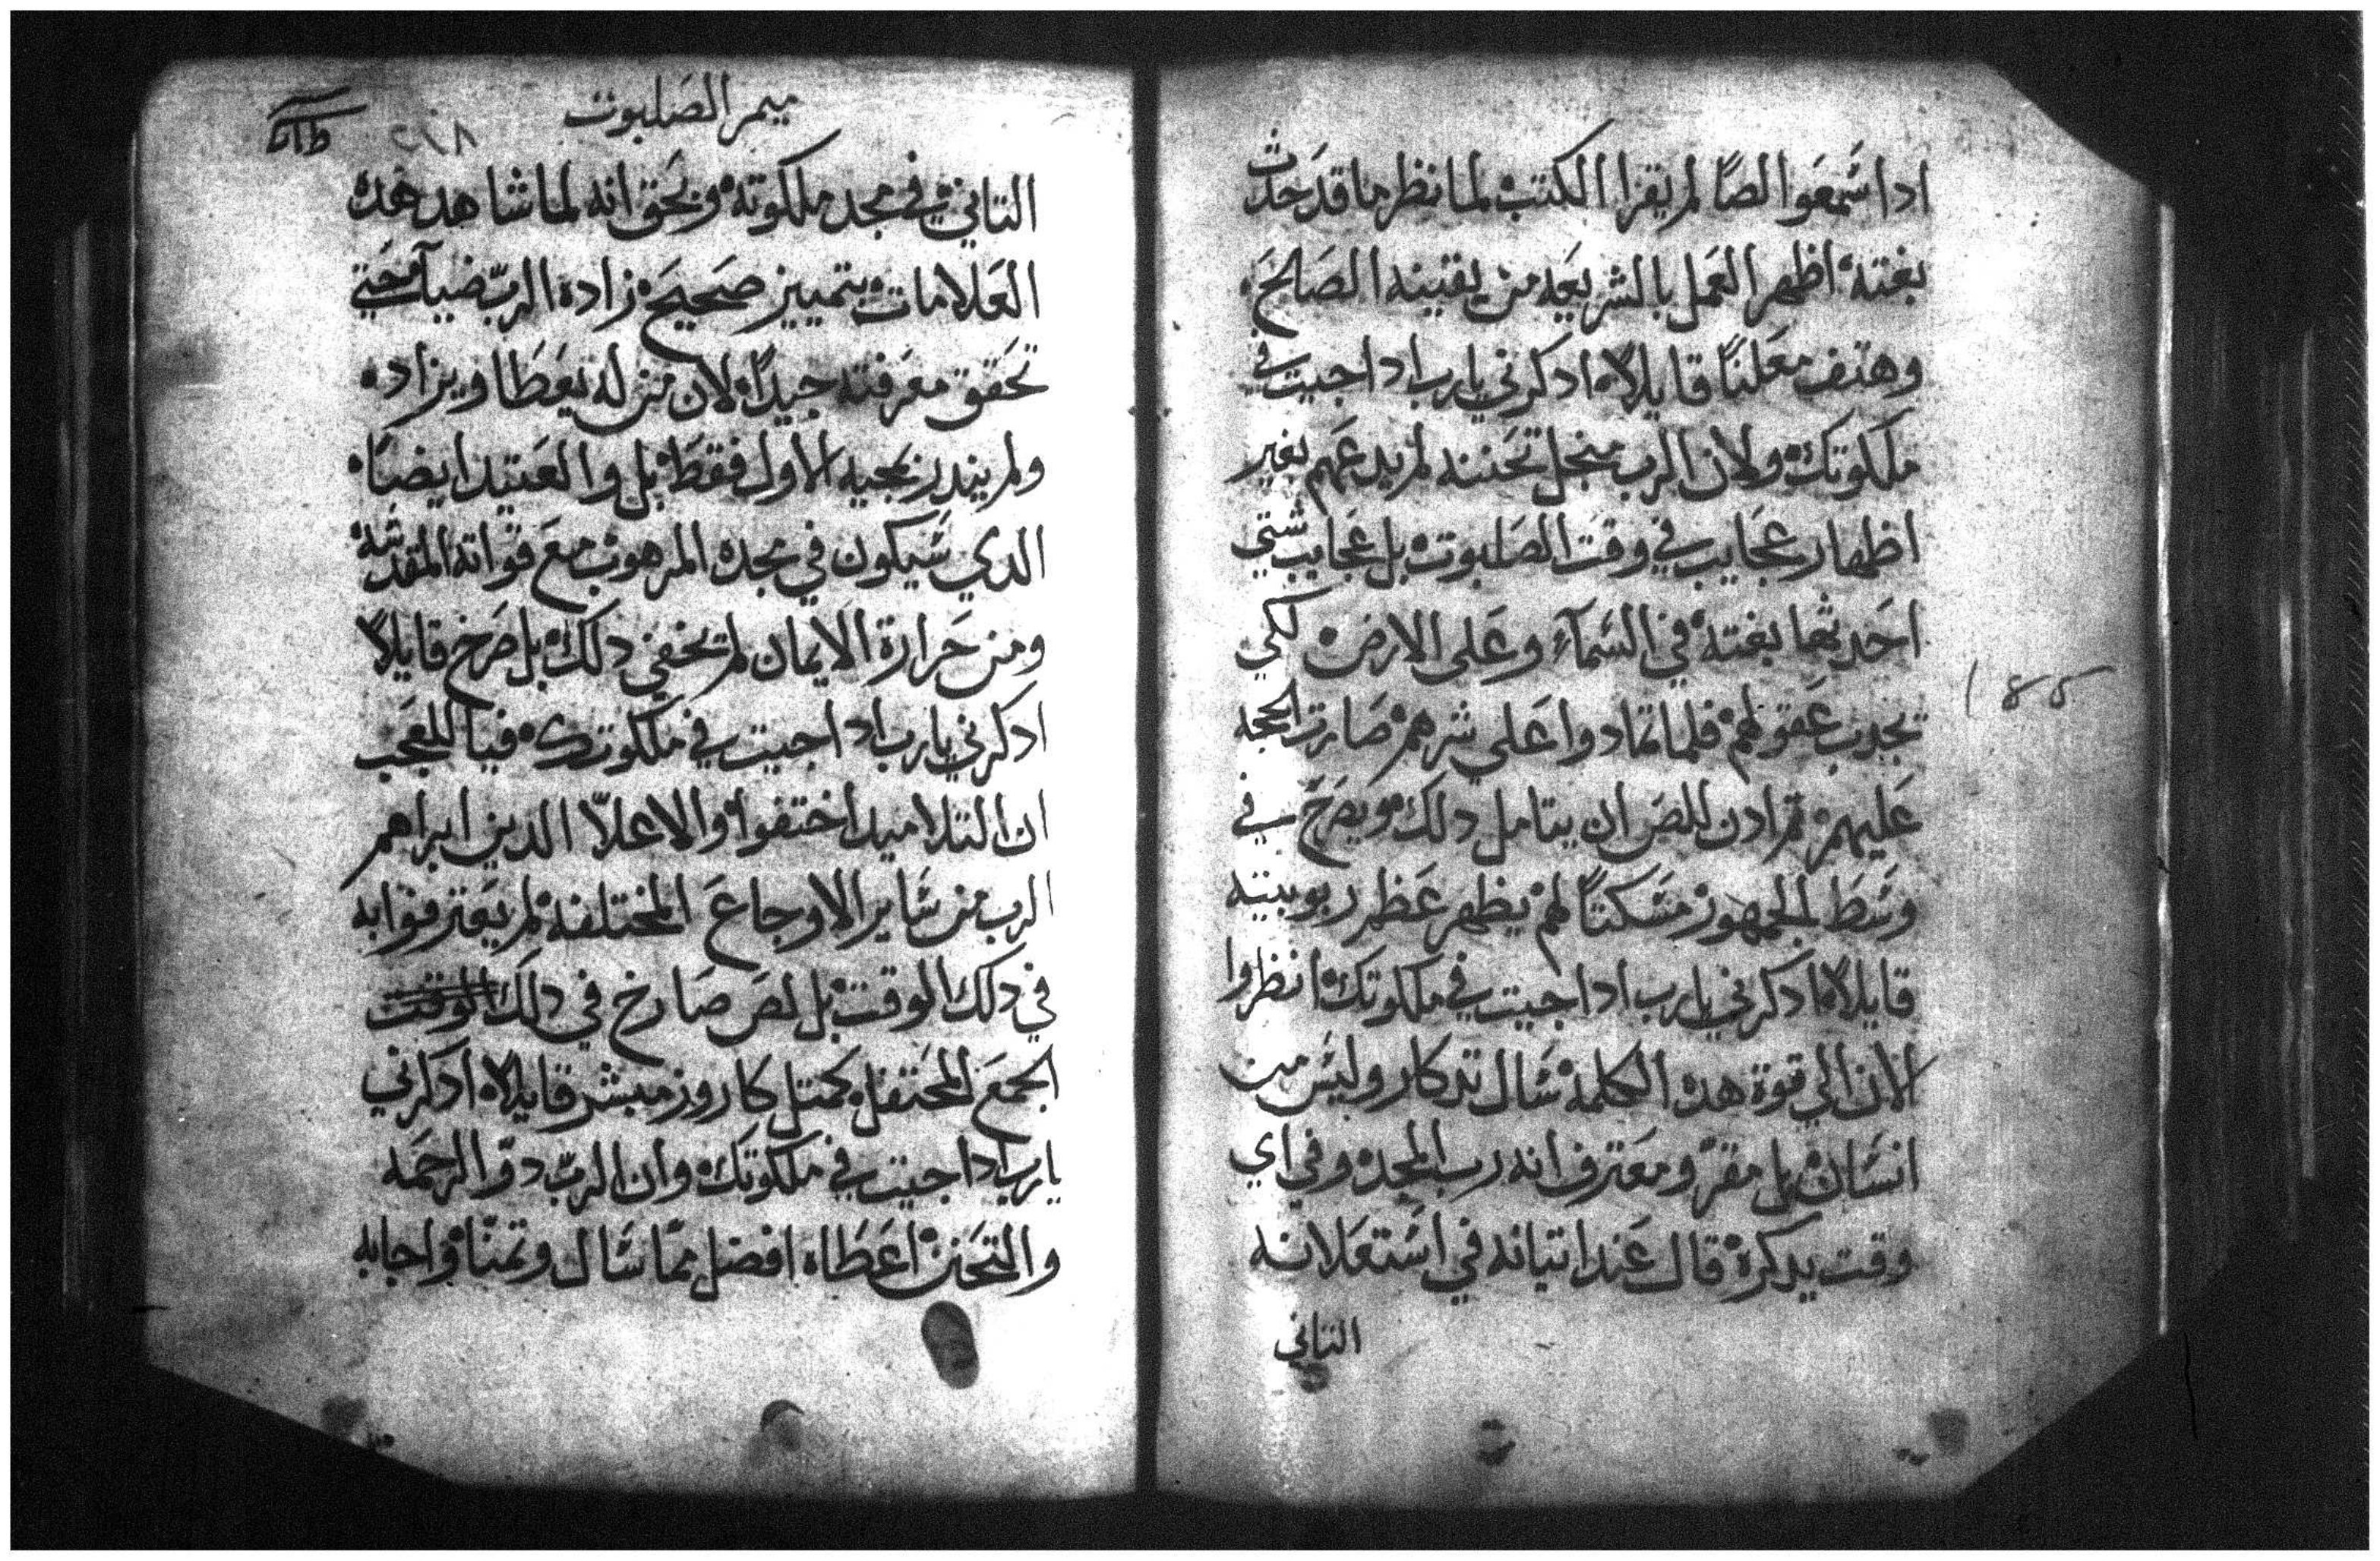 ادا سَمعَوا لصًا لم يقرا الكتب لما نظر ما قد حَدث
بغتة اظهر العَمل بالشريعَه من يقينه الصَالحَ
وهتف معَلنًا قايلاً ادكرني يارب ادا جيت في
ملكوتك ولان الرب منجل تحَننه لم يدعَهم بغير
اظهار عجَايب في وقت الصَلبوت بل عجَايب شتي
احَدثها بغتة في السَمآء وعَلى الارض لكي
تجدب عَقولهم فلما تمادوا عَلي شرهم صَارت الحجه
عَليهم تم ادن للص ان يتامل دلك ويصَرخ في
وسَط الجمهور مسَكتاً لهم يظهر عَظم ربوبيته
قايلاً ادكرني يارب ادا جيت في ملكوتك انظروا
الان الي قوة هده الكلمة سَال تدكار وليسَ من
انسَان بل مقرّ ومعَترف انه رب المجد وفي اي
وقت يدكره قال عَند اتيانه في استعَلانه
التاني
ميمر الصَلبوت
٢١٨
التاني في مجد ملكوته وبحَق انه لما شاهد هده
العَلامات بتمييز صَحيحَ زاده الربّ ضيآء حَتي
تحَقق معَرفته جيداً لان من له يعَطَا ويزاد
ولم يندر بمجيه الاول فقطَ بل والعَتيد ايضاً
الدي سَيكون في مجده المرهوب معَ قواته المقدسَة
ومن حَرارة الايمان لم تخفي دلك بل صَرخ قايلاً
ادكرني يارب ادا جيت في ملكوتك فيا للعَجَب
ان التلاميد اختفوا والاعلاّ الدين ابراهم
الرب من سَاير الاوجاعَ المختلفه لم يعَترفوا به
في دلك الوقت بل لص صَارخ في دلك الوقت
الجمعَ المحَتفل كمتل كاروز مبشر قايلا ادكرني
يارب ادا جيت في ملكوتك وان الربّ دو الرحمَه
والتحَنن اعَطَاه افضل ممّا سَال وتمنّا واجابه